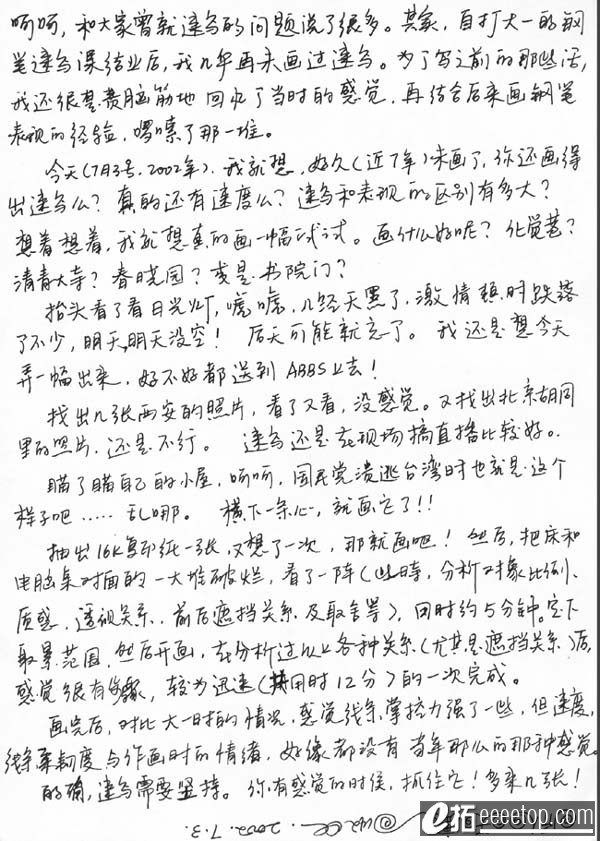 呵呵,和大家曾就速写的问题说了很多。其实,自打大一的钢
笔速写课结业后,我几乎再未画过速写。为了写之前的那些话,
我还很是费脑筋地回忆了当时的感觉,再结合后来画钢笔
表现的经验,啰嗦了那一堆。
今天(7月3号.2002年),我就想,好久(近7年)未画了,你还画得
出速写么?真的还有速度么?速写和表现的区别有多大?
想着想着,我就想真的画一幅试试。画什么好呢?化觉巷?
清真大寺?春晓园?或是书院门?
抬头看了看日光灯,嘿嘿,几经天黑了,激情顿时跌落
了不少,明天,明天没空!后天可能就忘了。我还是想今天
弄一幅出来,好不好都送到ABBS上去!
找出几张西安的照片,看了又看,没感觉。又找出北京胡同
里的照片,还是不行。速写还是在现场搞直播比较好。
瞄了瞄自己的小屋,呵呵,国民党溃逃台湾时也就是这个
样子吧……乱哪。横下一条心,就画它了!!
抽出16K复印纸一张,又想了一次,那就画吧!然后,把床和
电脑桌对面的一大堆破烂,看了一阵(此时,分析对象比例、
质感、透视关系、前后遮挡关系及取舍等),用时约5分钟。定下
取景范围,然后开画,在分析过以上各种关系(尤其是遮挡关系)后,
感觉很有,较为迅速(共用时12分)的一次完成。
画完后,对比大一时的情况,感觉线条掌控力强了一些,但速度,
线条柔韧度与作画时的情绪,好像都没有当年那么的那种感觉。
的确,速写需要坚持。你有感觉的时侯,抓住它!多来几张!
2002.7.3.
e拓 eeeetop.com